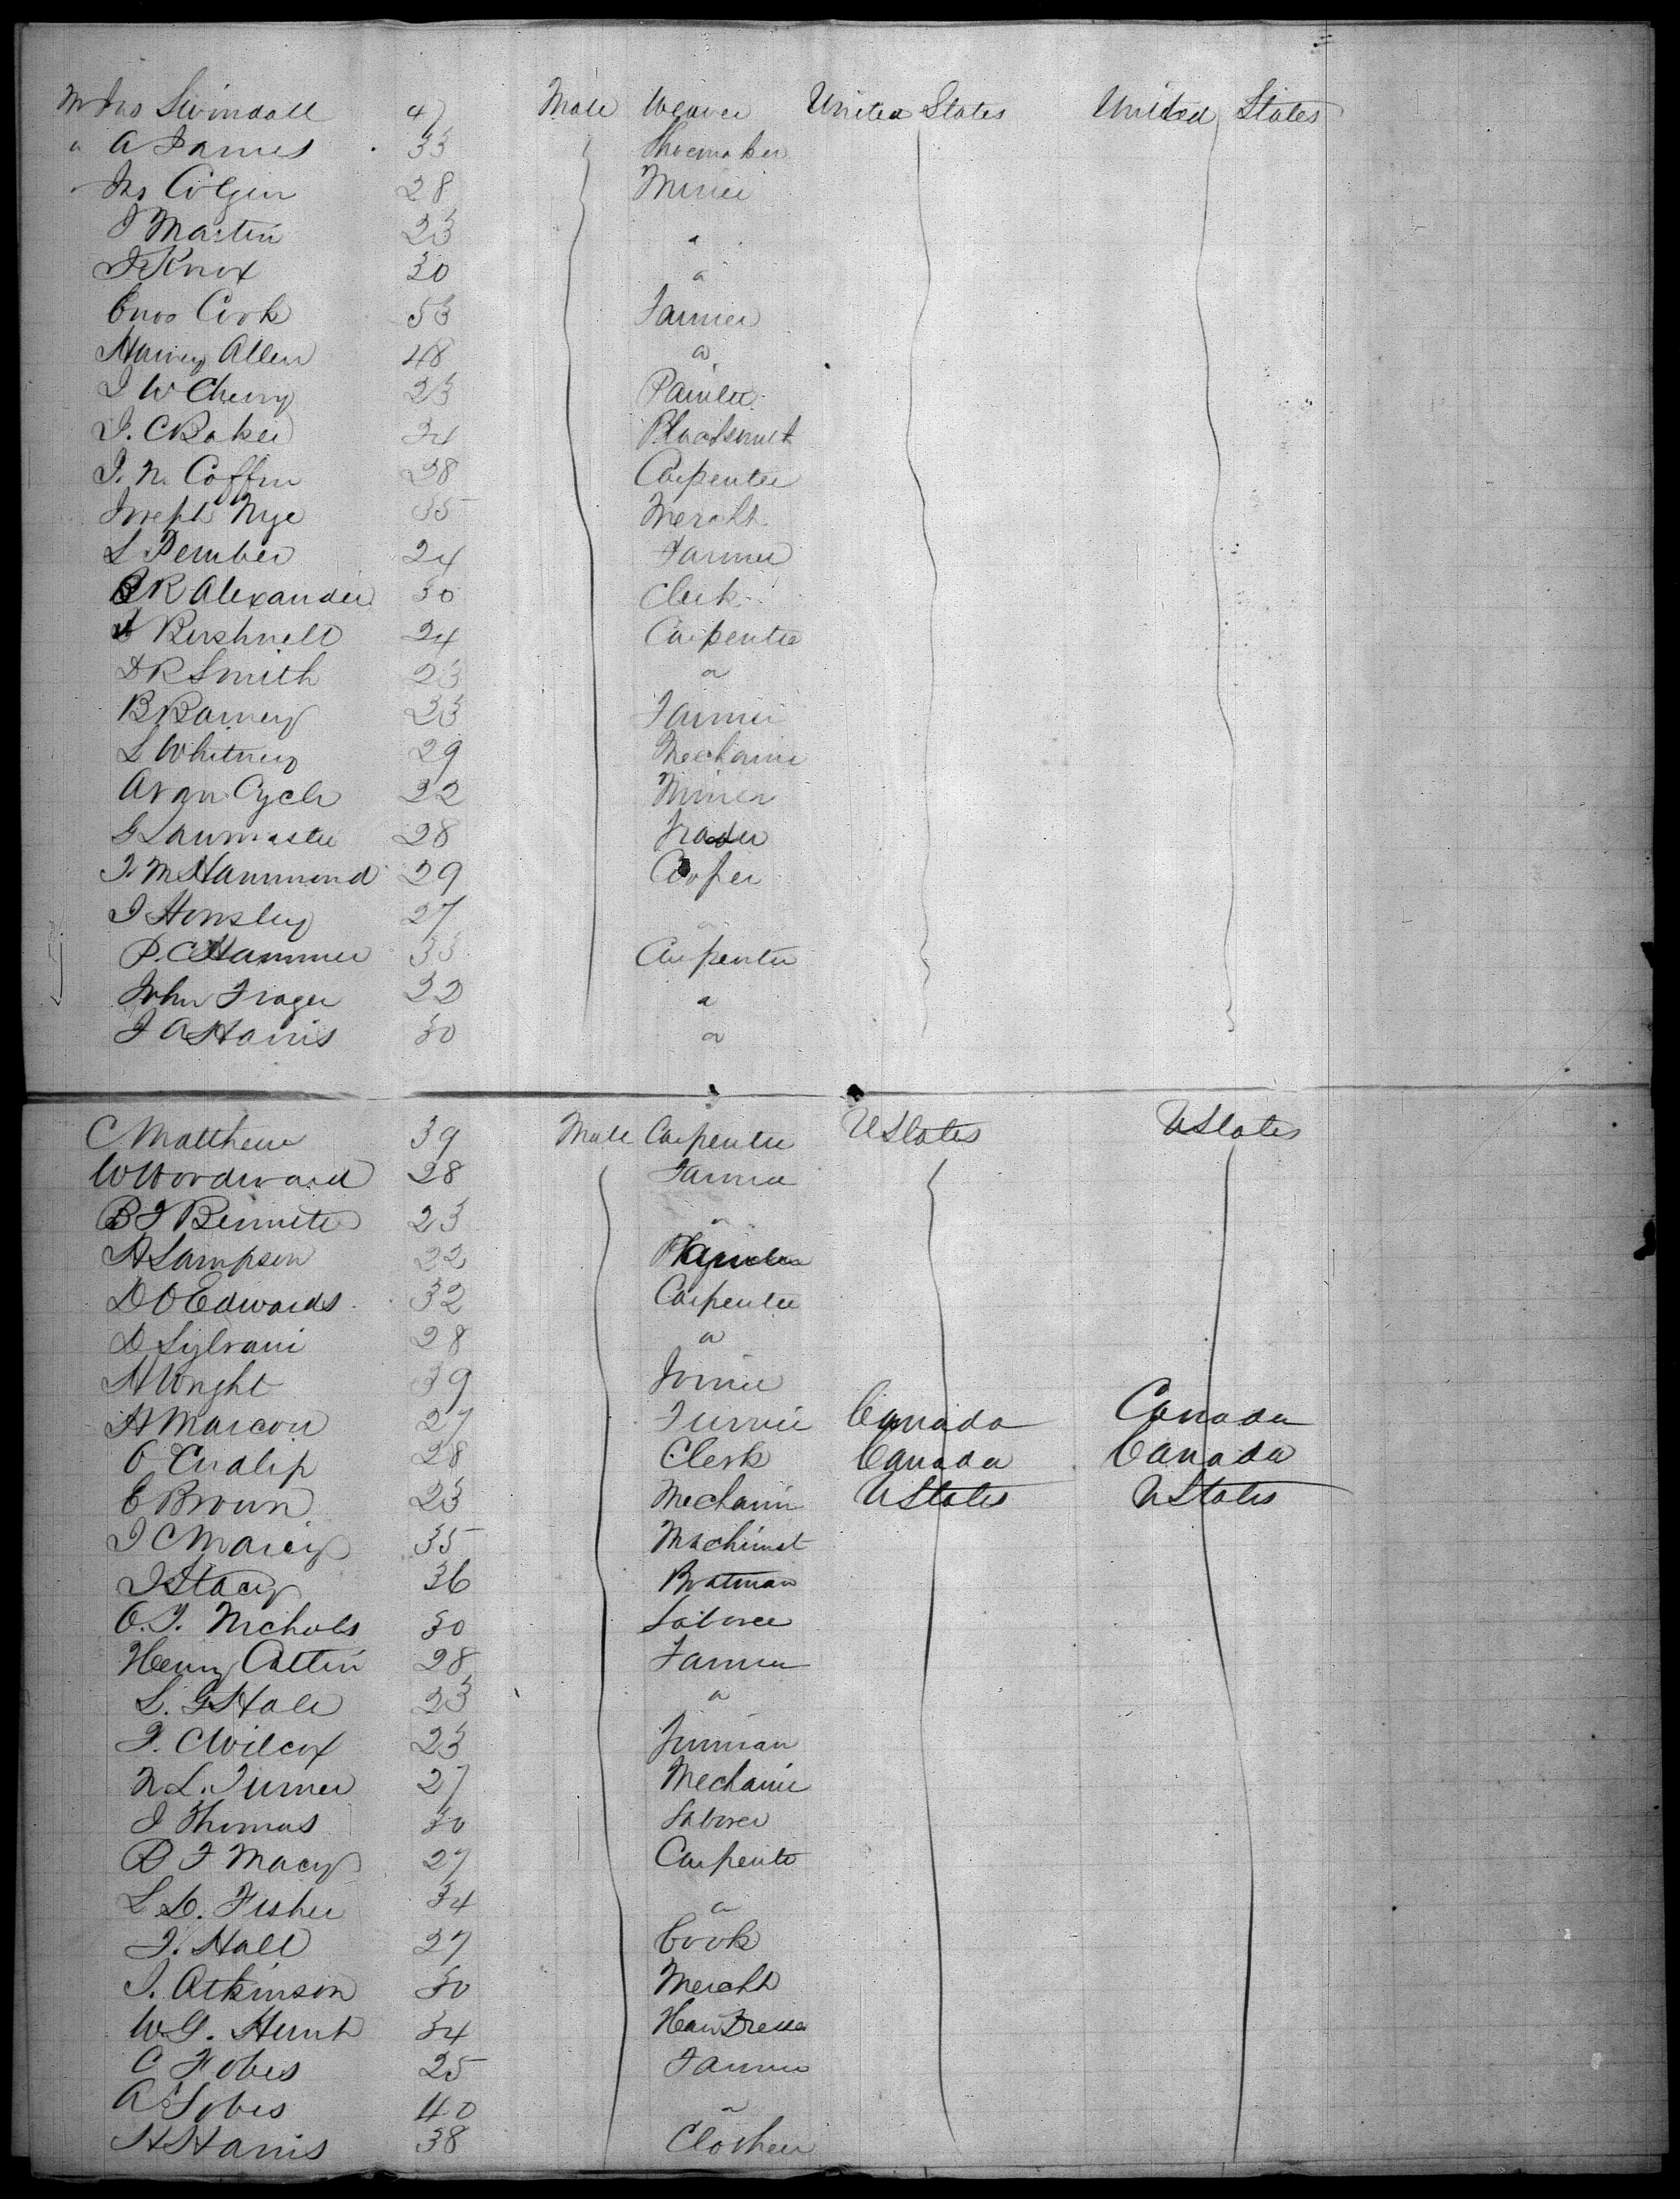 Mr Jno Swindall 47 Male Weaver United States United States
" A James 33 Shoemaker
" Jno Colgin 28 Miner
J Martin 23 "
J Knox 30 "
Enos Cook 53 Farmer
Harvey Allen 48 "
J W Cherry 23 Painter
J. C Baker 34 Blacksmith
J. N. Coffin 28 Carpenter
Joseph Nye 35 Mercht
L Pember 24 Farmer
R Alexander 30 Clerk
Bushnell 24 Carpenter
D R Smith 23 "
B Barney 23 Farmer
L Whitney 29 Mechanic
A Van Cycle 22 Miner
G Laumaster 28 Trader
J. M Hammond 29 Cooper
J Hensley 27 "
P. C Hammer 33 Carpenter
John Frager 22 "
J A Harris 30 "
C Matthew 39 Male Carpenter UStates UStates
W Woodward 28 Farmer
B F Bennett 23 "
H Sampson 22
D O Edwards 32 Carpenter
D Sylvani 28 "
H Wright 39 Joiner
H Marcou 27 Canada Canada
O Cudlip 28 Clerk Canada Canada
E Brown 23 Mechanic UStates UStates
J C Marcy 35 Machinist
J Stacy 36 Boatman
O. F. Nichols 30 Laborer
Henry Cattin 28 Farmer
L. G Hale 23 "
F. C Wilcox 23
N. L. Turner 27 Mechanic
J Thomas 30 Laborer
B F Macy 27 Carpenter
L D. Fisher 34 "
J. Hall 27 Cook
J. Atkinson 30 Mercht
W G. Hunt 34 Hair Dresser
C Fobes 25 Farmer
A Fobes 40 "
H Harris 38 Clothier